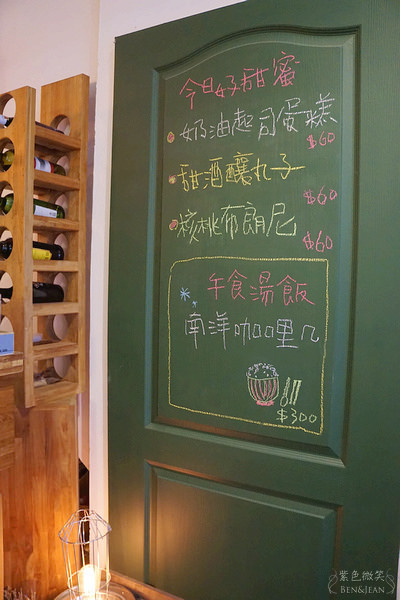 今日好甜蜜
奶油起司蛋糕
$60
甜酒釀丸子
$60
核桃布朗尼
$60
午食湯飯
南洋咖哩几
$300
紫色微笑
BEN&JEAN